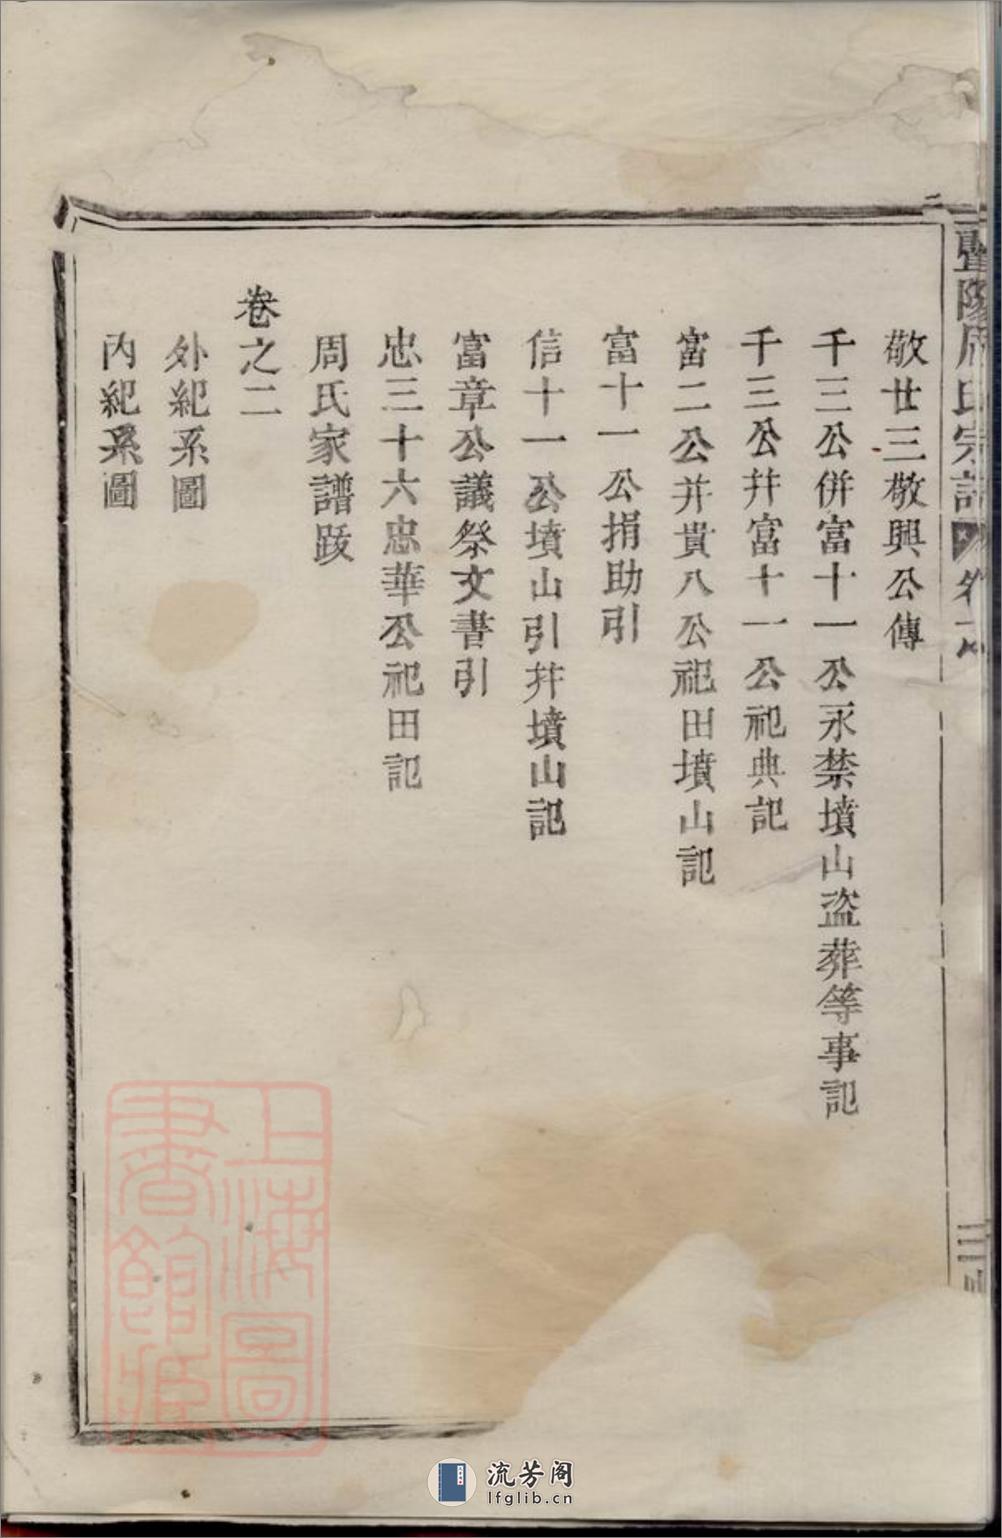 敬廿三敬興公傳
千三公併富十一公永禁墳山盜葬等事記
千三公幷富十一公祀典記
富二公幷貴八公祀田墳山記
富十一公捐助引
信十一公墳山引幷墳山記
富章公議祭文書引
忠三十六忠華公祀田記
周氏家譜跋
卷之二
外紀系圖
內紀系圖
暨陽周氏宗譜
上海圖書館藏
流芳阁
lfglib.cn